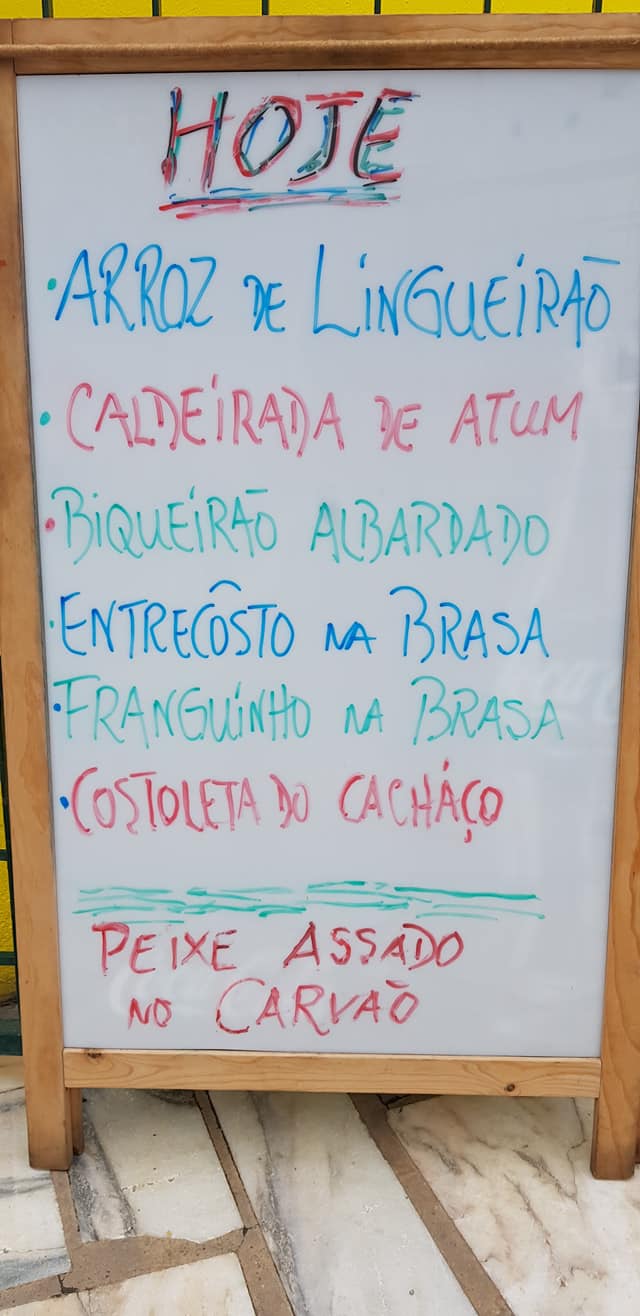 HOJE
·ARROZ DE LINGUEIRÃO
·CALDEIRADA DE ATUM
·BIQUEIRÃO ALBARDADO
·ENTRECÔSTO NA BRASA
·FRANGUINHO NA BRASA
·COSTOLETA DO CACHÁÇO
PEIXE ASSADO
NO CARVÃO